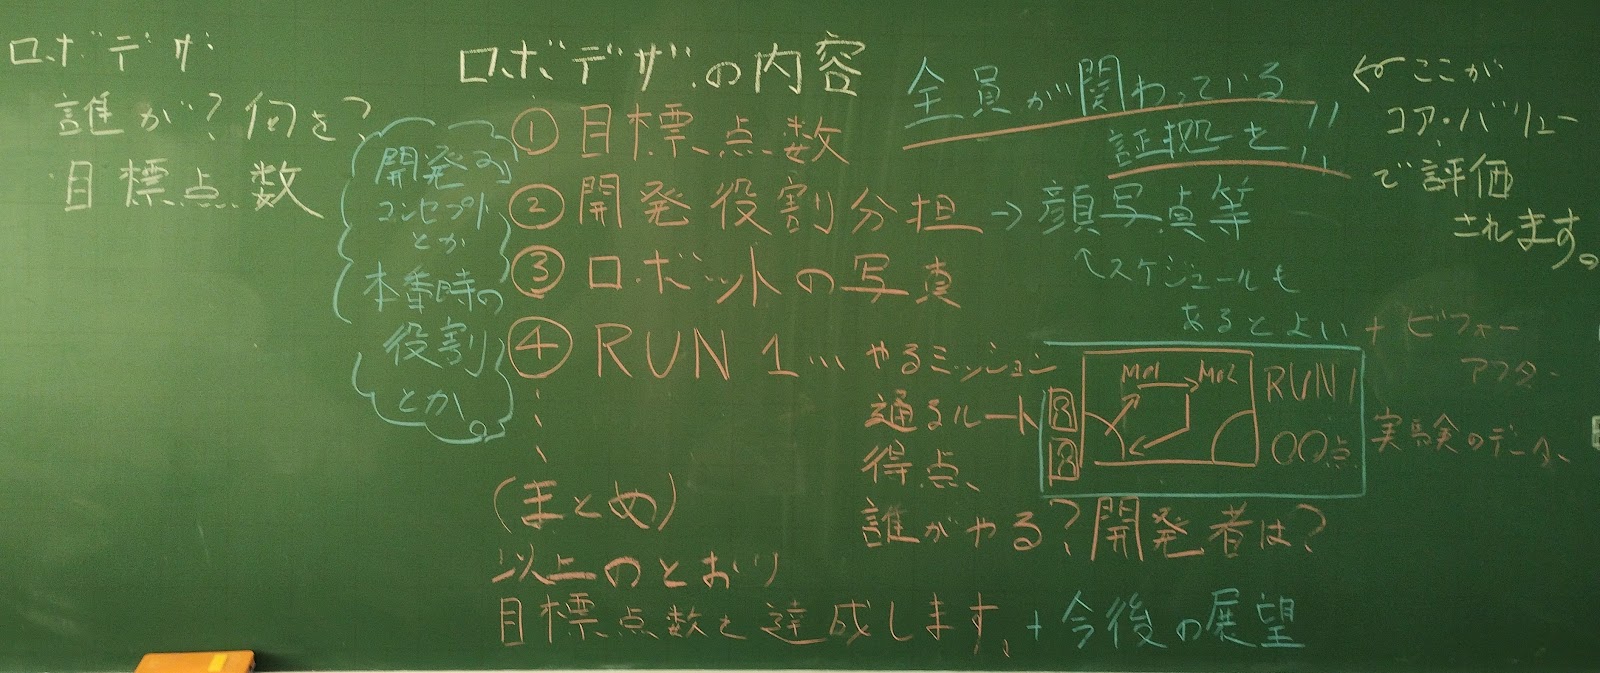 ロボデザ
誰が?何を?
目標点数
開発の
コンセプト
とか
本番時の
役割
とか。
ロボデザの内容
①目標点数
②開発役割分担→顔写真等
↑スケジュールも
あるとよい
③ロボットの写真
④RUN1…やるミッション
通るルート
得点、
誰がやる?開発者は?
全員が関わっている
証拠を!!
←ここが
コア・バリュー
で評価
されます。
M01→M02
RUN1
〇〇点
+ビフォー
アフター
実験のデータ、
(まとめ)
以上のとおり
目標点数を達成します。+今後の展望